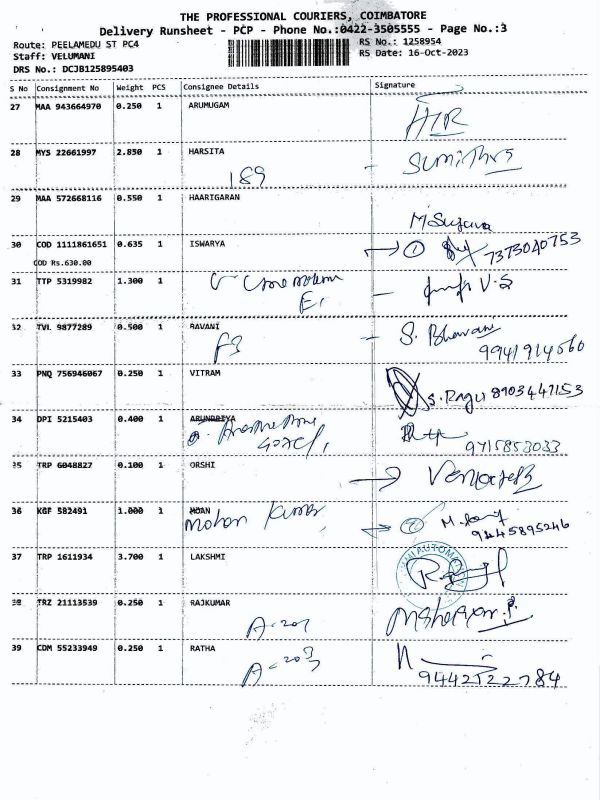 THE PROFESSIONAL COURIERS, COIMBATORE
Delivery Runsheet - PCP - Phone No.:0422-3505555 - Page No.:3
Route: PEELAMEDU ST PC4
RS No.: 1258954
Staff: VELUMANI
RS Date: 16-Oct-2023
DRS No.: DCJB125895403
S No Consignment No Weight PCS Consignee Details Signature
27 MAA 943664970 0.250 1 ARUMUGAM
28 MYS 22661997 2.850 1 HARSITA
189
29 MAA 572668116 0.550 1 HAARIGARAN
30 COD 1111861651 0.635 1 ISWARYA 7373040753
COD Rs.630.00
31 TTP 5319982 1.300 1
32 TVL 9877289 0.500 1 RAVANI S. Bhavani
F3
33 PNQ 756946067 0.250 1 VITRAM S. Ragu 8903447153
34 DPI 5215403 0.400 1 ARUNDRIYA
9715853033
35 TRP 6048827 0.100 1 ORSHI
36 KGF 582491 1.000 1 MOAN
Mohan Kumar 9445895246
37 TRP 1611934 3.700 1 LAKSHMI
38 TRZ 21113539 0.250 1 RAJKUMAR
A-201
39 CDM 55233949 0.250 1 RATHA
A-203